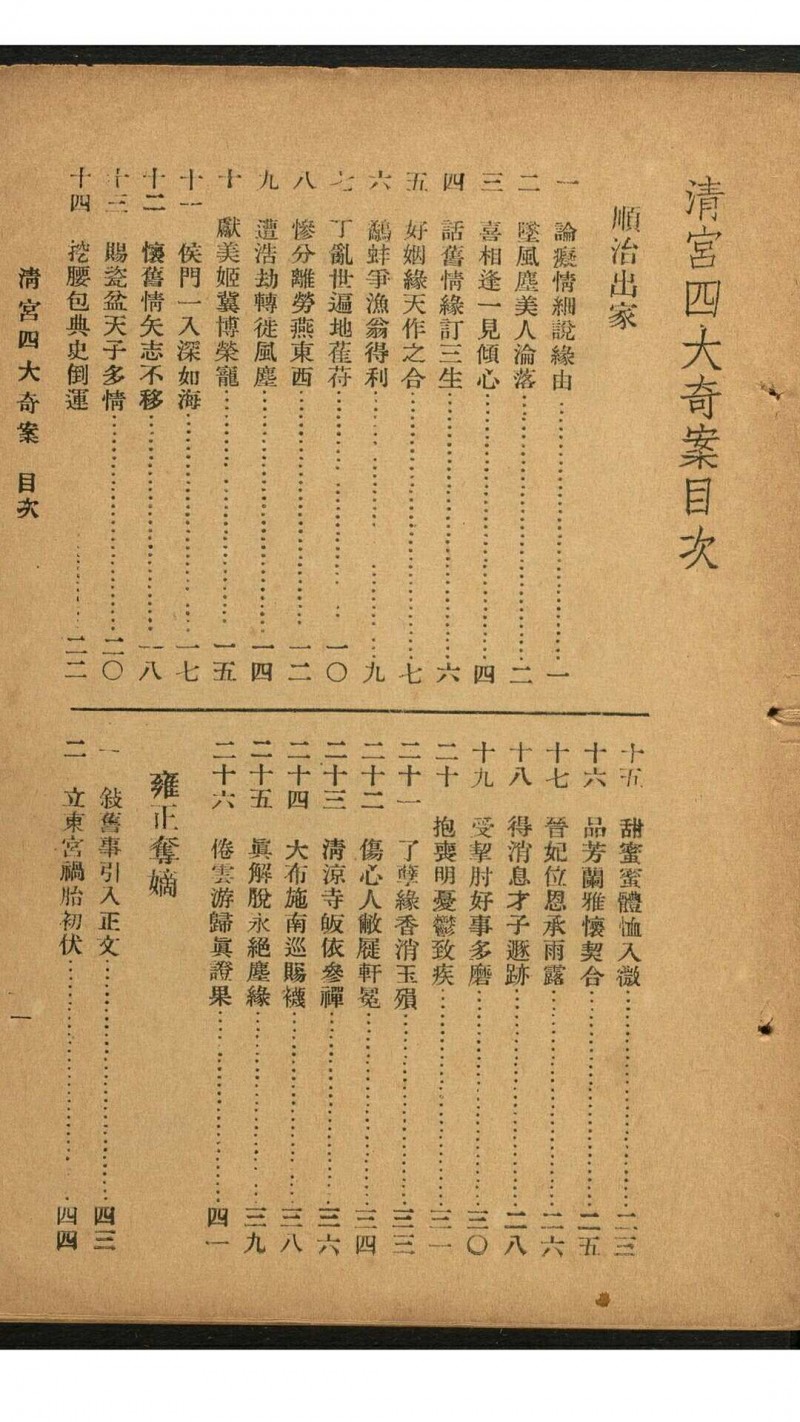 清宮四大奇案目次
順治出家
一 論癡情細說緣由 一
二 墜風塵美人淪落 二
三 喜相逢一見傾心 四
四 話舊情緣訂三生 六
五 好姻緣天作之合 七
六 鷸蚌爭漁翁得利 九
七 丁亂世逼地萑苻 一〇
八 慘分離勞燕東西 一二
九 遭浩劫轉徙風塵 一四
十 獻美姬冀博榮寵 一五
十一 侯門一入深如海 一七
十二 懷舊情矢志不移 一八
十三 賜瓷盆天子多情 二〇
十四 挖腰包典史倒運 二二
十五 甜蜜蜜體恤入微 二三
十六 品芳蘭雅懷契合 二五
十七 晉妃位恩承雨露 二六
十八 得消息才子遯跡 二八
十九 受掣肘好事多磨 三〇
二十 抱喪明憂鬱致疾 三一
二十一 了孽緣香消玉殞 三三
二十二 傷心人敝屣軒冕 三四
二十三 清涼寺皈依參禪 三六
二十四 大布施南巡賜襪 三八
二十五 眞解脫永絕塵緣 三九
二十六 倦雲游歸眞證果 四一
雍正奪嫡
一 敍舊事引入正文 四三
二 立東宮禍胎初伏 四四
清宮四大奇案 目次
一